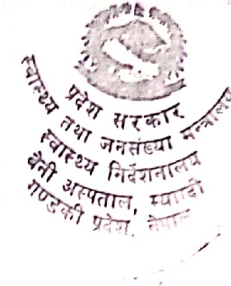 प्रदेश सरकार
स्वास्थ्य तथा जनसंख्या मन्त्रालय
स्वास्थ्य निर्देशनालय
बेनी अस्पताल, म्याग्दी
गण्डकी प्रदेश, नेपाल